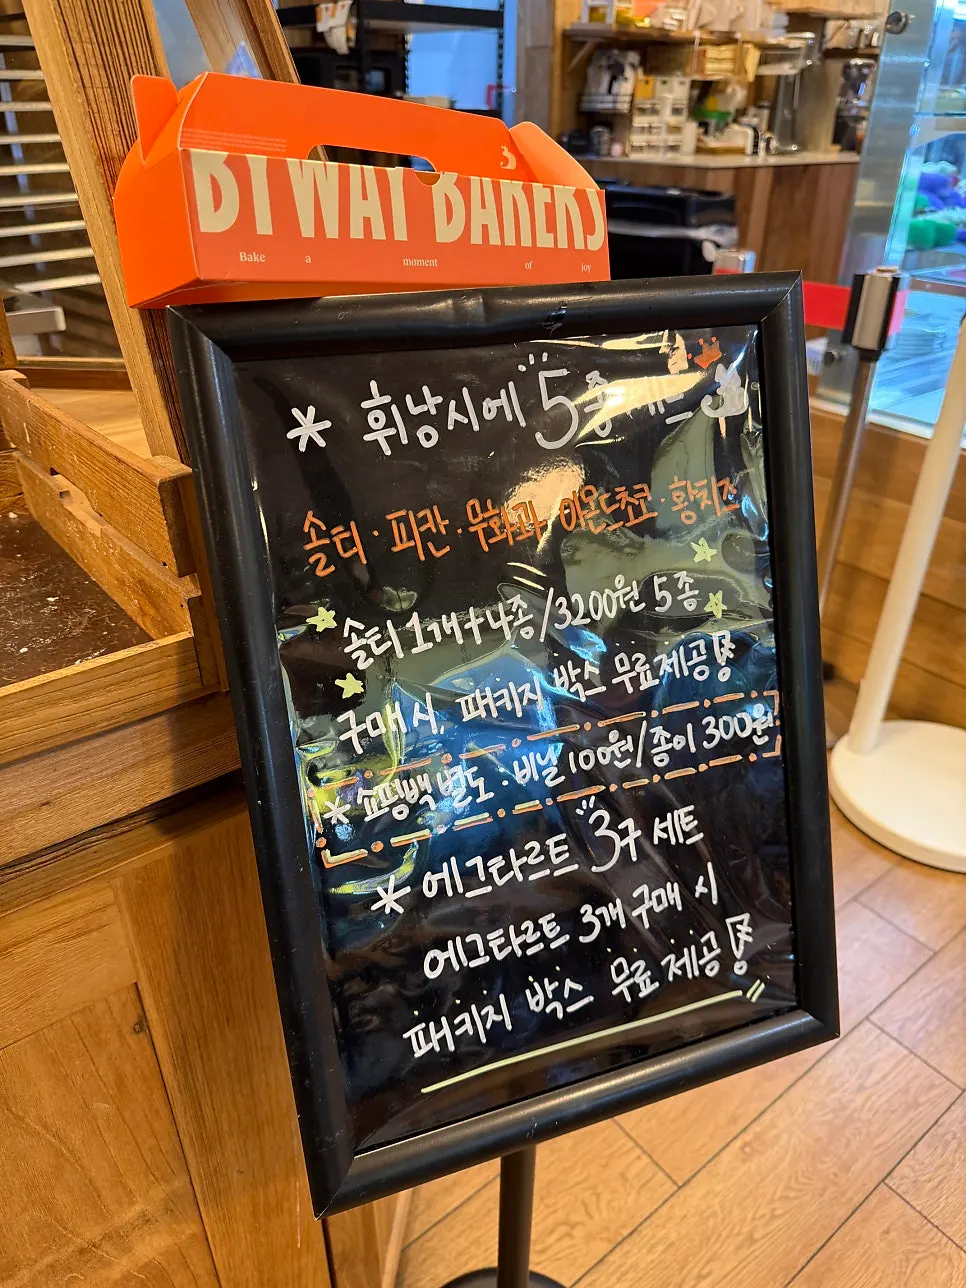 BYWAY BAKERY
Bake a moment of joy
* 휘낭시에 "5종 세트
솔티 · 피칸 · 무화과 아몬드초코 · 황치즈
솔티 1개+4종/3200원 5종
구매 시, 패키지 박스 무료제공!
* 쇼핑백 별도 · 비닐 100원/종이 300원
* 에그타르트 "3구 세트
에그타르트 3개 구매 시
패키지 박스 무료 제공!